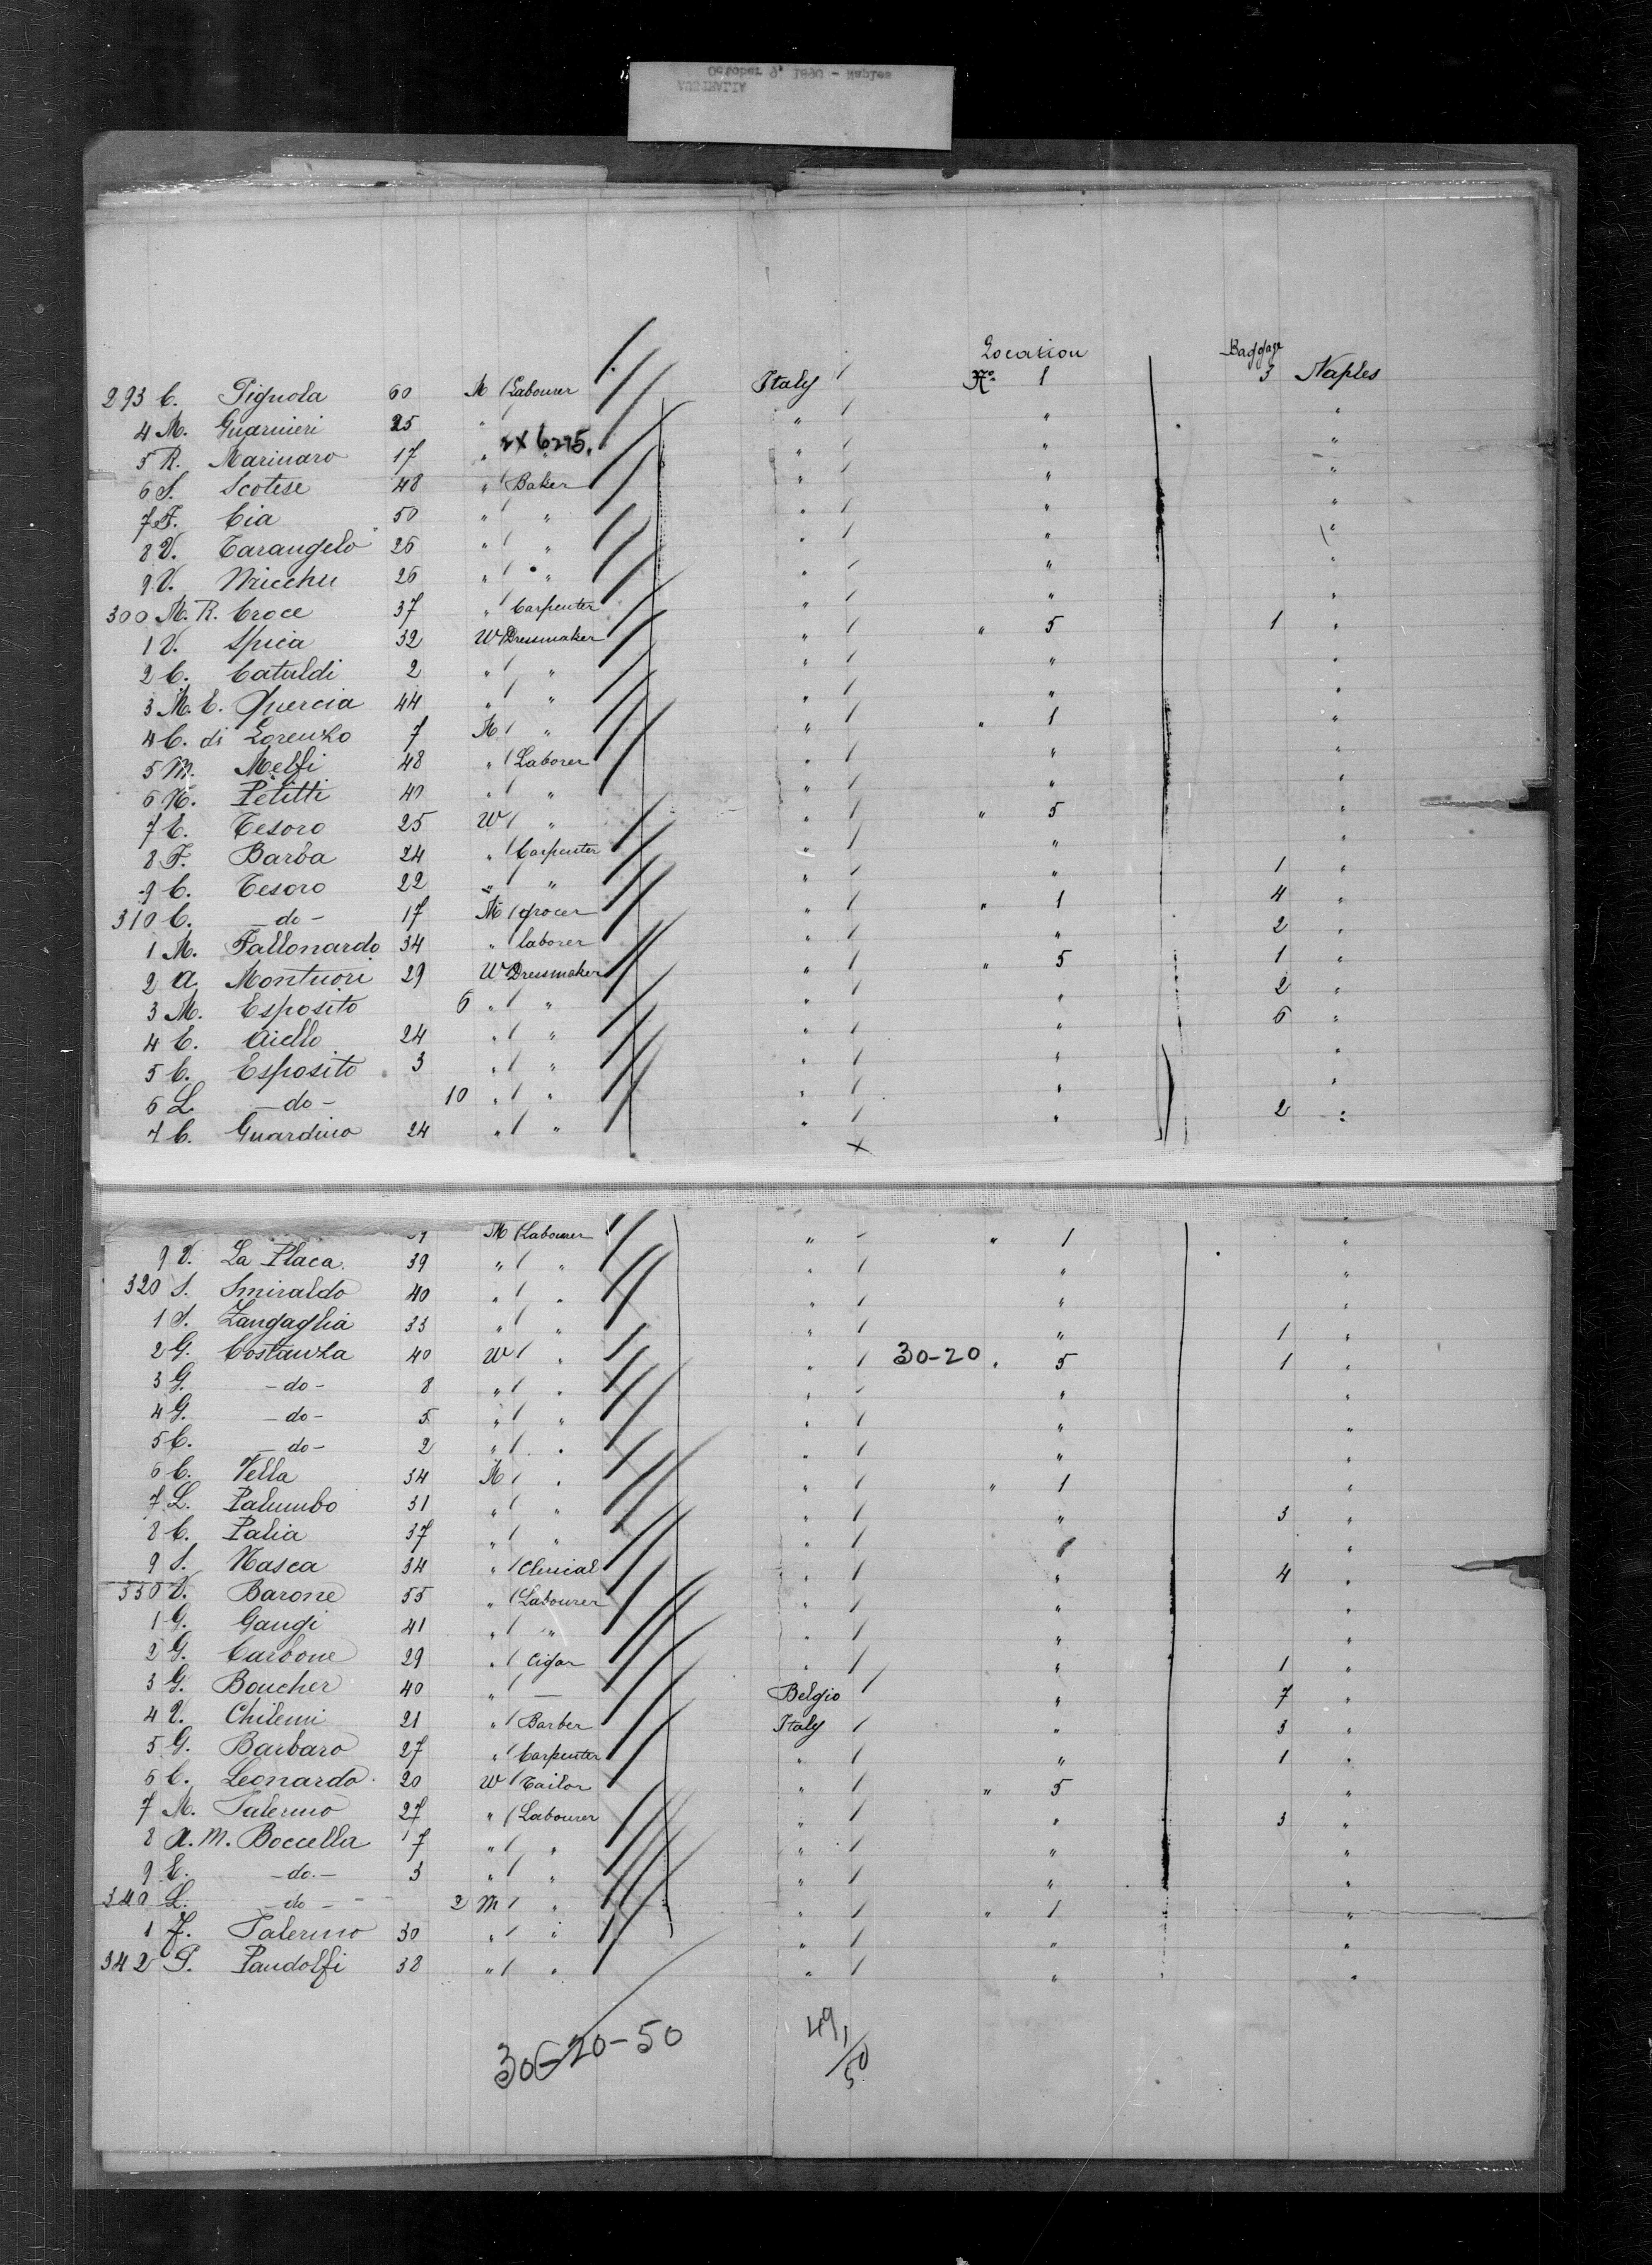 October 9, 1890 - Naples
AUSTRALIA
Location Baggage
293 C. Pignola 60 M / Labourer Italy / No. 1 3 Naples
4 M. Guarnieri 25 " " " / " "
5 R. Marinaro 17 " 2x6295. " / " "
6 S. Scotese 48 " / Baker " / " "
7 F. Cia 50 " / " " / " "
8 V. Tarangelo 26 " / " " / " "
9 V. 26 " / " " / " "
300 M. R. Croce 37 " Carpenter " / " "
1 V. Spica 32 W / Dressmaker " / " 5 1 "
2 C. Cataldi 2 " / " " / " "
3 M. C. Quercia 44 " / " " / " "
4 C. di Lorenzo 7 M / " " / " 1 "
5 M. Melfi 48 " / Laborer " / " "
6 N. Petitti 40 " / " " / " "
7 C. Tesoro 25 W / " " / " 5 "
8 F. Barba 24 " / Carpenter " / " "
9 C. Tesoro 22 " / " " / " 1 "
310 C. - do - 17 M / grocer " / " 1 4 "
1 M. Fallonardo 34 " laborer " / " 2 "
2 A. Montuori 29 W Dressmaker " / " 5 1 "
3 M. Esposito 6 " / " " / " 2 "
4 C. Aiello 24 " / " " / " 6 "
5 C. Esposito 3 " / " " / " "
6 L. - do - 10 " / " " / " "
7 C. Guardino 24 " / " " / " 2 "
x
M / Labourer " - " 1 "
9 V. La Placa 39 " / " " / " "
320 S. Smiraldo 40 " / " " / " "
1 S. Zangaglia 33 " / " " / " 1 "
2 G. Costanza 40 W / " " / 30-20 " 5 1 "
3 G. - do - 8 " / " " / " "
4 G. - do - 5 " / " " / " "
5 C. - do - 2 " / " " / " "
6 C. Vella 34 M / " " / " 1 "
7 L. Palumbo 31 " / " " / " 3 "
8 C. Palia 37 " / " " / "
9 S. Nasca 34 " / Clerical " / " 4 "
330 V. Barone 55 " / Labourer " / " "
1 G. Gangi 41 " / " " / " "
2 G. Carbone 29 " / Cigar " / " 1 "
3 G. Boucher 40 " / — Belgio / " 7 "
4 V. Chilemi 21 " / Barber Italy / " 3 "
5 G. Barbaro 27 " / Carpenter " / " 1 "
6 C. Leonardo 20 W / Tailor " / " 5 "
7 M. Palermo 27 " / Labourer " / " 3 "
8 A. M. Boccella 17 " / " " / " "
9 E. - do - 3 " / " " / " "
340 L. - do - 2 M / " " / " 1 "
1 F. Palermo 30 " / " " / " "
342 P. Pandolfi 38 " / " " / " "
30-20-50
49,
/50